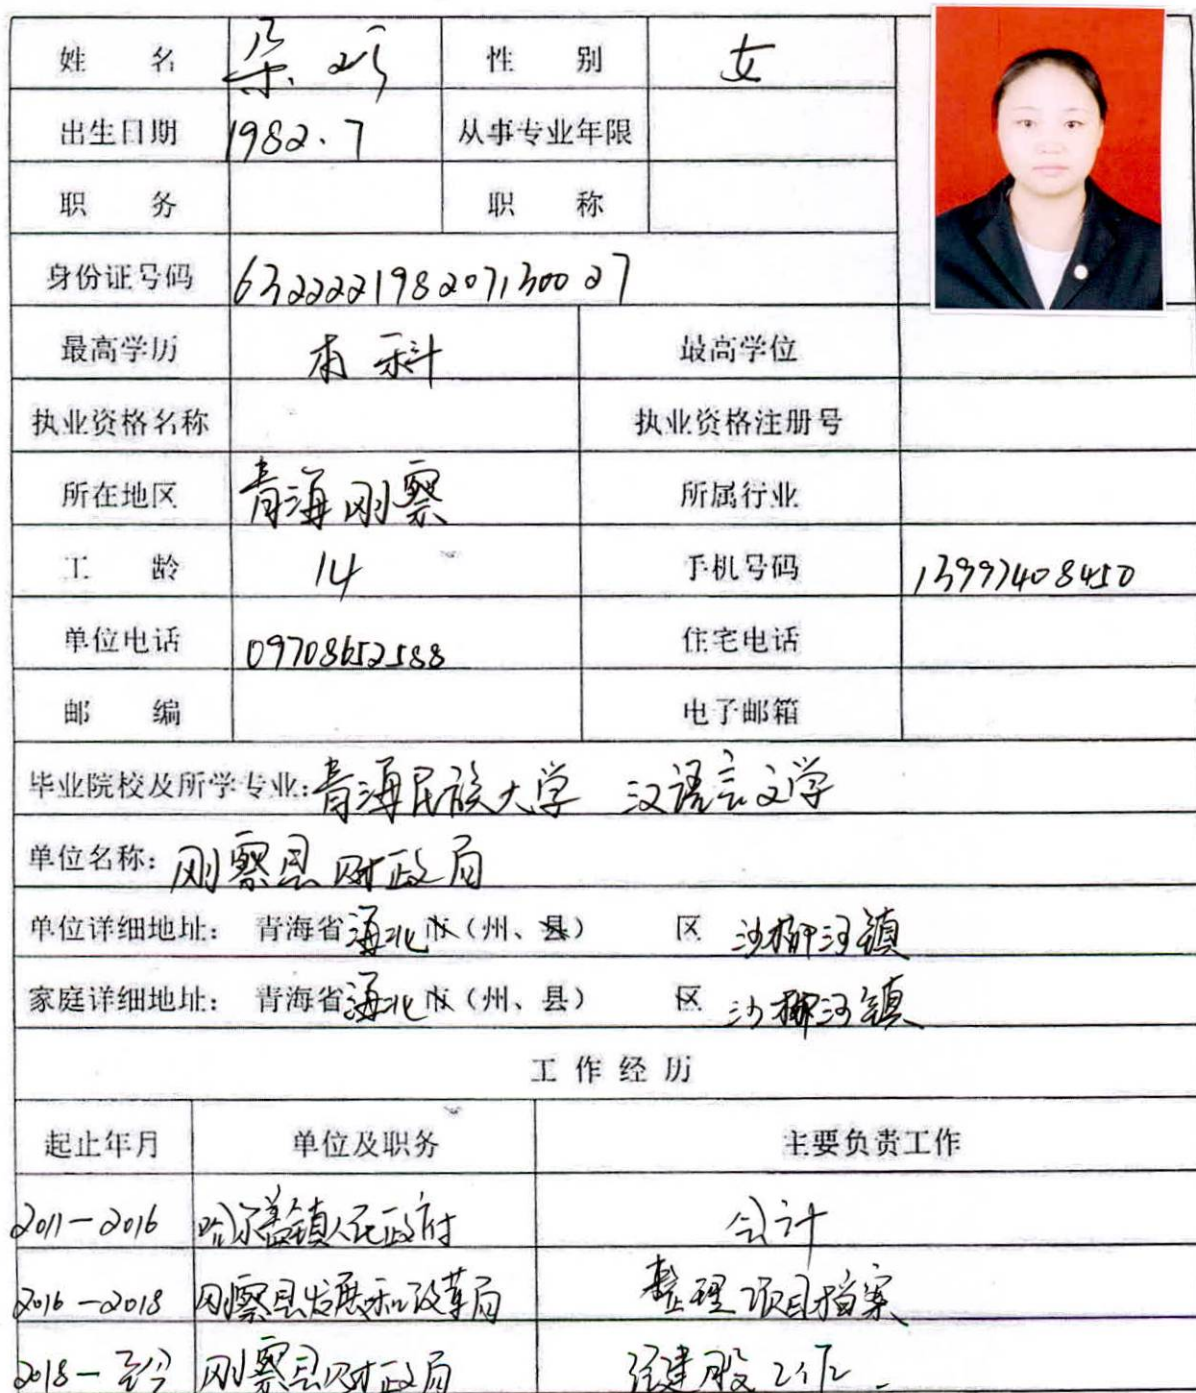 姓 名 朵 性 别 女
出生日期 1982.7 从事专业年限
职 务 职 称
身份证号码 632222198207130027
最高学历 本科 最高学位
执业资格名称 执业资格注册号
所在地区 青海刚察 所属行业
工 龄 14 手机号码 13997408450
单位电话 09708652588 住宅电话
邮 编 电子邮箱
毕业院校及所学专业:青海民族大学 汉语言文学
单位名称:刚察县财政局
单位详细地址: 青海省海北市(州、县) 区 沙柳河镇
家庭详细地址: 青海省海北市(州、县) 区 沙柳河镇
工 作 经 历
起止年月 单位及职务 主要负责工作
2011-2016 哈尔盖镇人民政府 会计
2016-2018 刚察县发展和改革局 整理项目档案
2018-至今 刚察县财政局 经建股工作